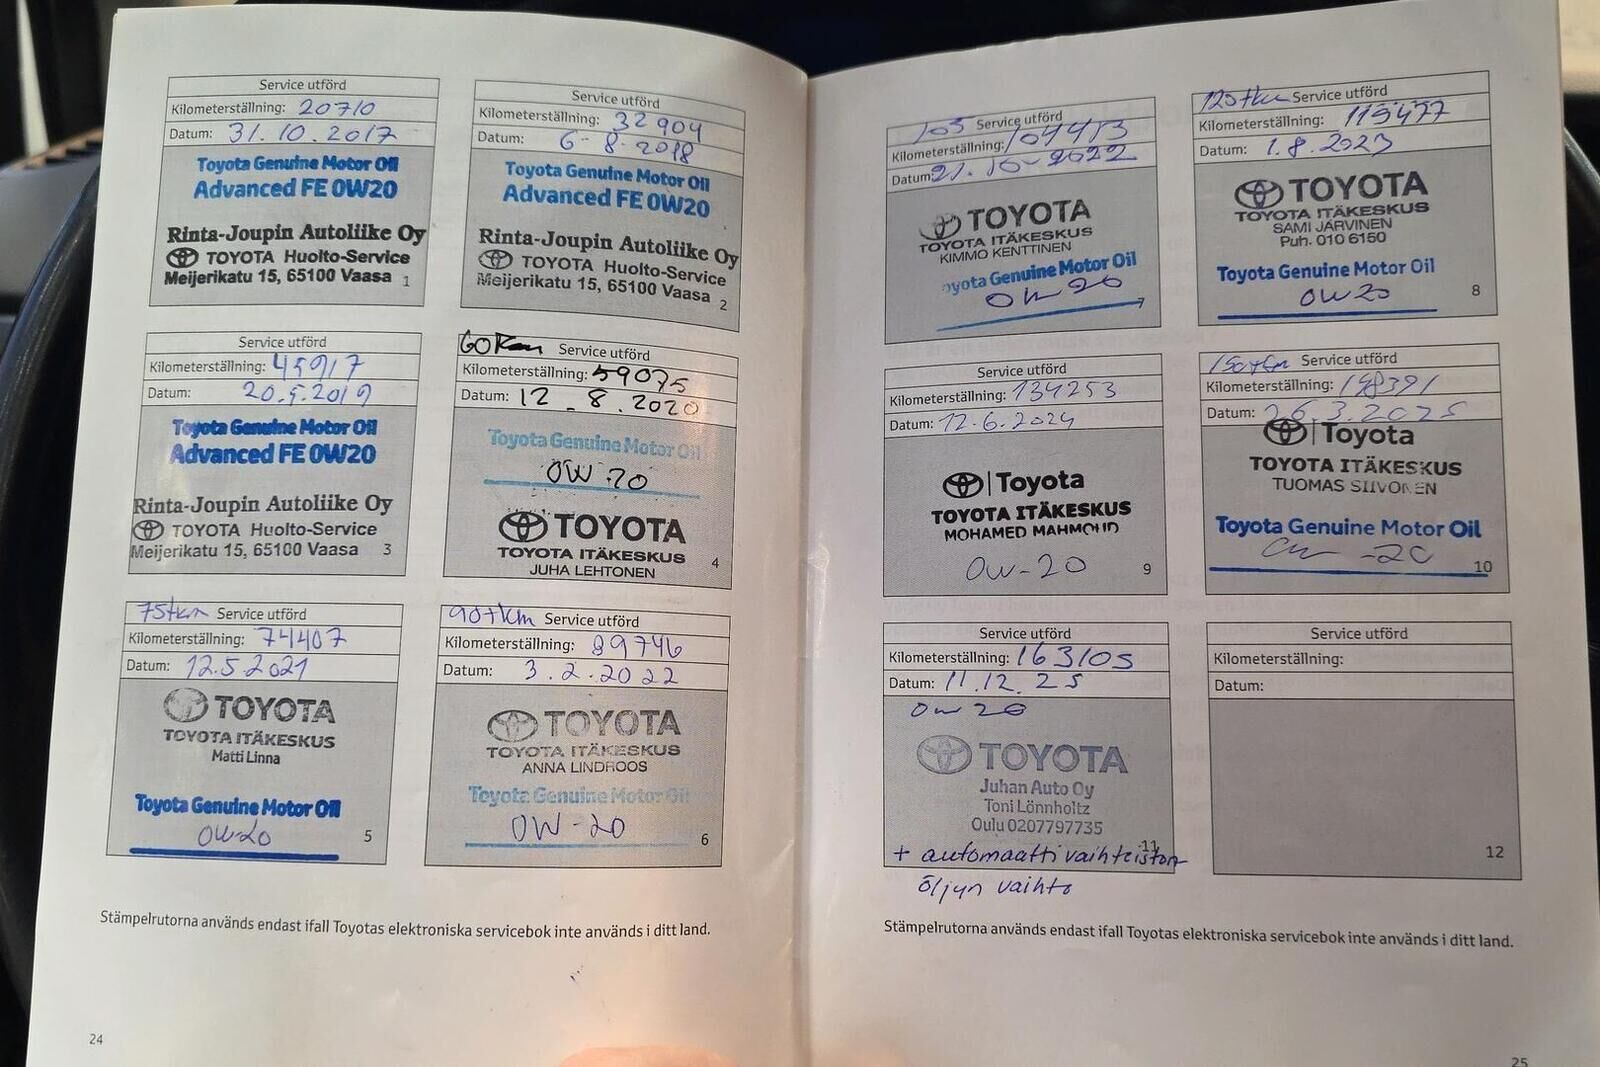 Service utförd
Kilometerställning: 20710
Datum: 31.10.2017
Toyota Genuine Motor Oil
Advanced FE 0W20
Rinta-Joupin Autoliike Oy
TOYOTA Huolto-Service
Meijerikatu 15, 65100 Vaasa 1
Service utförd
Kilometerställning: 32904
Datum: 6-8-2018
Toyota Genuine Motor Oil
Advanced FE 0W20
Rinta-Joupin Autoliike Oy
TOYOTA Huolto-Service
Meijerikatu 15, 65100 Vaasa 2
Service utförd
Kilometerställning: 45917
Datum: 20.5.2019
Toyota Genuine Motor Oil
Advanced FE 0W20
Rinta-Joupin Autoliike Oy
TOYOTA Huolto-Service
Meijerikatu 15, 65100 Vaasa 3
60Km Service utförd
Kilometerställning: 59075
Datum: 12.8.2020
Toyota Genuine Motor Oil
0W20
TOYOTA
TOYOTA ITÄKESKUS
JUHA LEHTONEN 4
75tkm Service utförd
Kilometerställning: 74407
Datum: 12.5.2021
TOYOTA
TOYOTA ITÄKESKUS
Matti Linna
Toyota Genuine Motor Oil
0W-20 5
90tkm Service utförd
Kilometerställning: 89746
Datum: 3.2.2022
TOYOTA
TOYOTA ITÄKESKUS
ANNA LINDROOS
Toyota Genuine Motor Oil
0W-20 6
Stämpelrutorna används endast ifall Toyotas elektroniska servicebok inte används i ditt land.
24
105 Service utförd
Kilometerställning: 104413
Datum: 21.10-2022
TOYOTA
TOYOTA ITÄKESKUS
KIMMO KENTTINEN
oyota Genuine Motor Oil
0W20 7
120tkm Service utförd
Kilometerställning: 119477
Datum: 1.8.2023
TOYOTA
TOYOTA ITÄKESKUS
SAMI JÄRVINEN
Puh. 010 6150
Toyota Genuine Motor Oil
0W20 8
Service utförd
Kilometerställning: 134253
Datum: 12.6.2024
Toyota
TOYOTA ITÄKESKUS
MOHAMED MAHMOUD
0W-20 9
150tkm Service utförd
Kilometerställning: 148391
Datum: 26.3.2025
Toyota
TOYOTA ITÄKESKUS
TUOMAS SIIVONEN
Toyota Genuine Motor Oil
0W-20 10
Service utförd
Kilometerställning: 163105
Datum: 11.12.25
0W20
TOYOTA
Juhan Auto Oy
Toni Lönnholtz
Oulu 0207797735
11
+ automaattivaihteiston
öljyn vaihto
Service utförd
Kilometerställning:
Datum:
12
Stämpelrutorna används endast ifall Toyotas elektroniska servicebok inte används i ditt land.
25